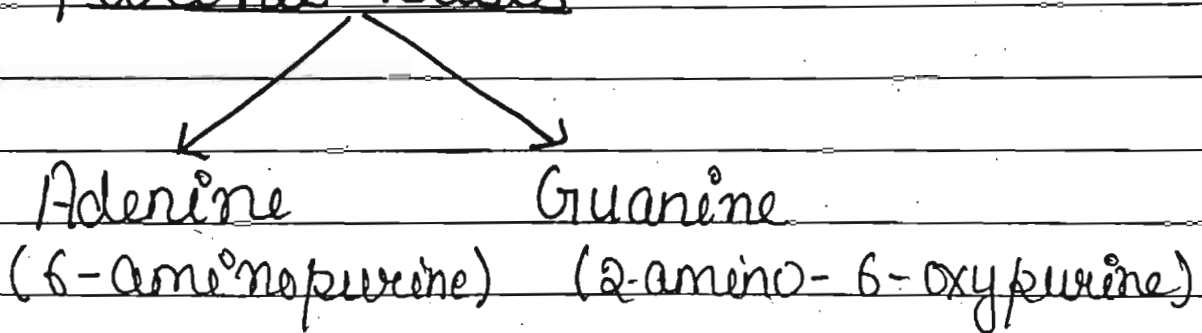 Adenine Guanine
(6-aminopurine) (2-amino- 6-oxypurine)